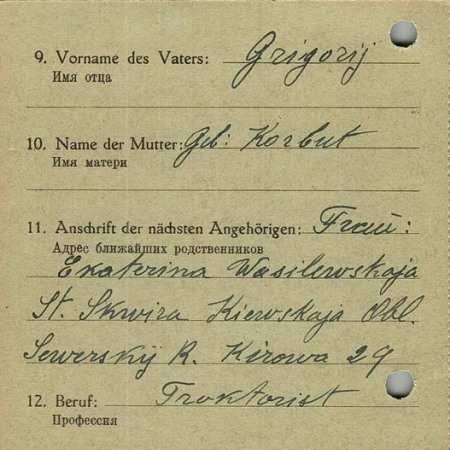 9. Vorname des Vaters: Grigorij
Имя отца
10. Name der Mutter: Geb: Korbut
Имя матери
11. Anschrift der nächsten Angehörigen: Frau:
Адрес ближайших родственников
Ekaterina Wasilewskaja
St. Skwira Kiewskaja Obl.
Sewerskÿ R. Kirowa 29
12. Beruf: Troktorist
Профессия